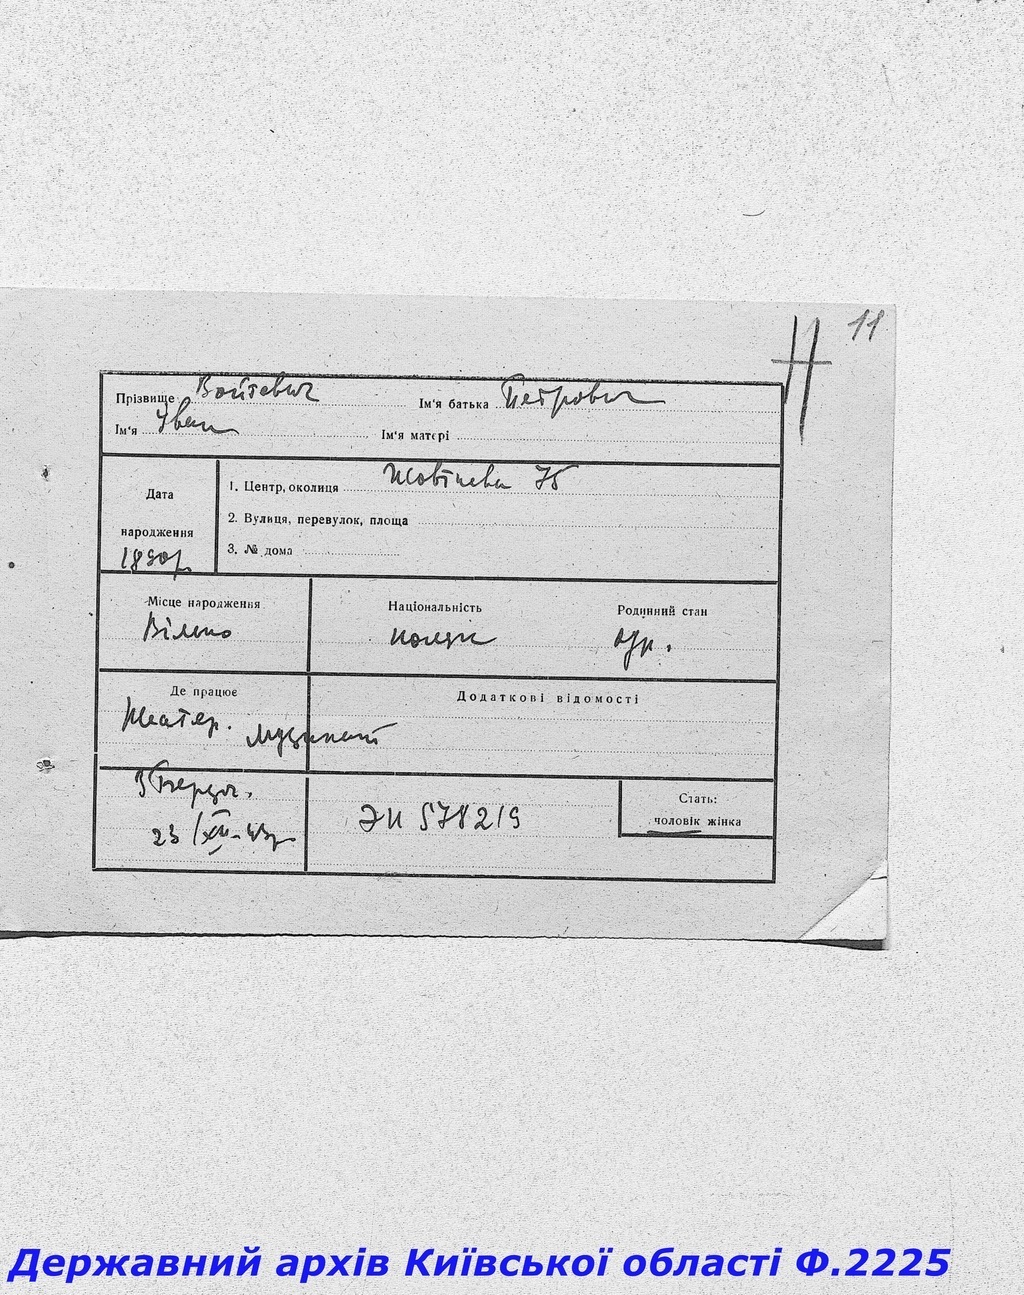 11
Прізвище Войтевич Ім'я батька Петрович
Ім'я Іван Ім'я матері
Дата народження 1890р
1. Центр, околиця Жовтнева 75
2. Вулиця, перевулок, площа
3. № дома
Місце народження Національність Родинний стан
Вільно поляк одр.
Де працює Додаткові відомості
Театр. музикант
23/XII-43р ЭИ 578219
Стать:
чоловік жінка
Державний архів Київської області Ф.2225